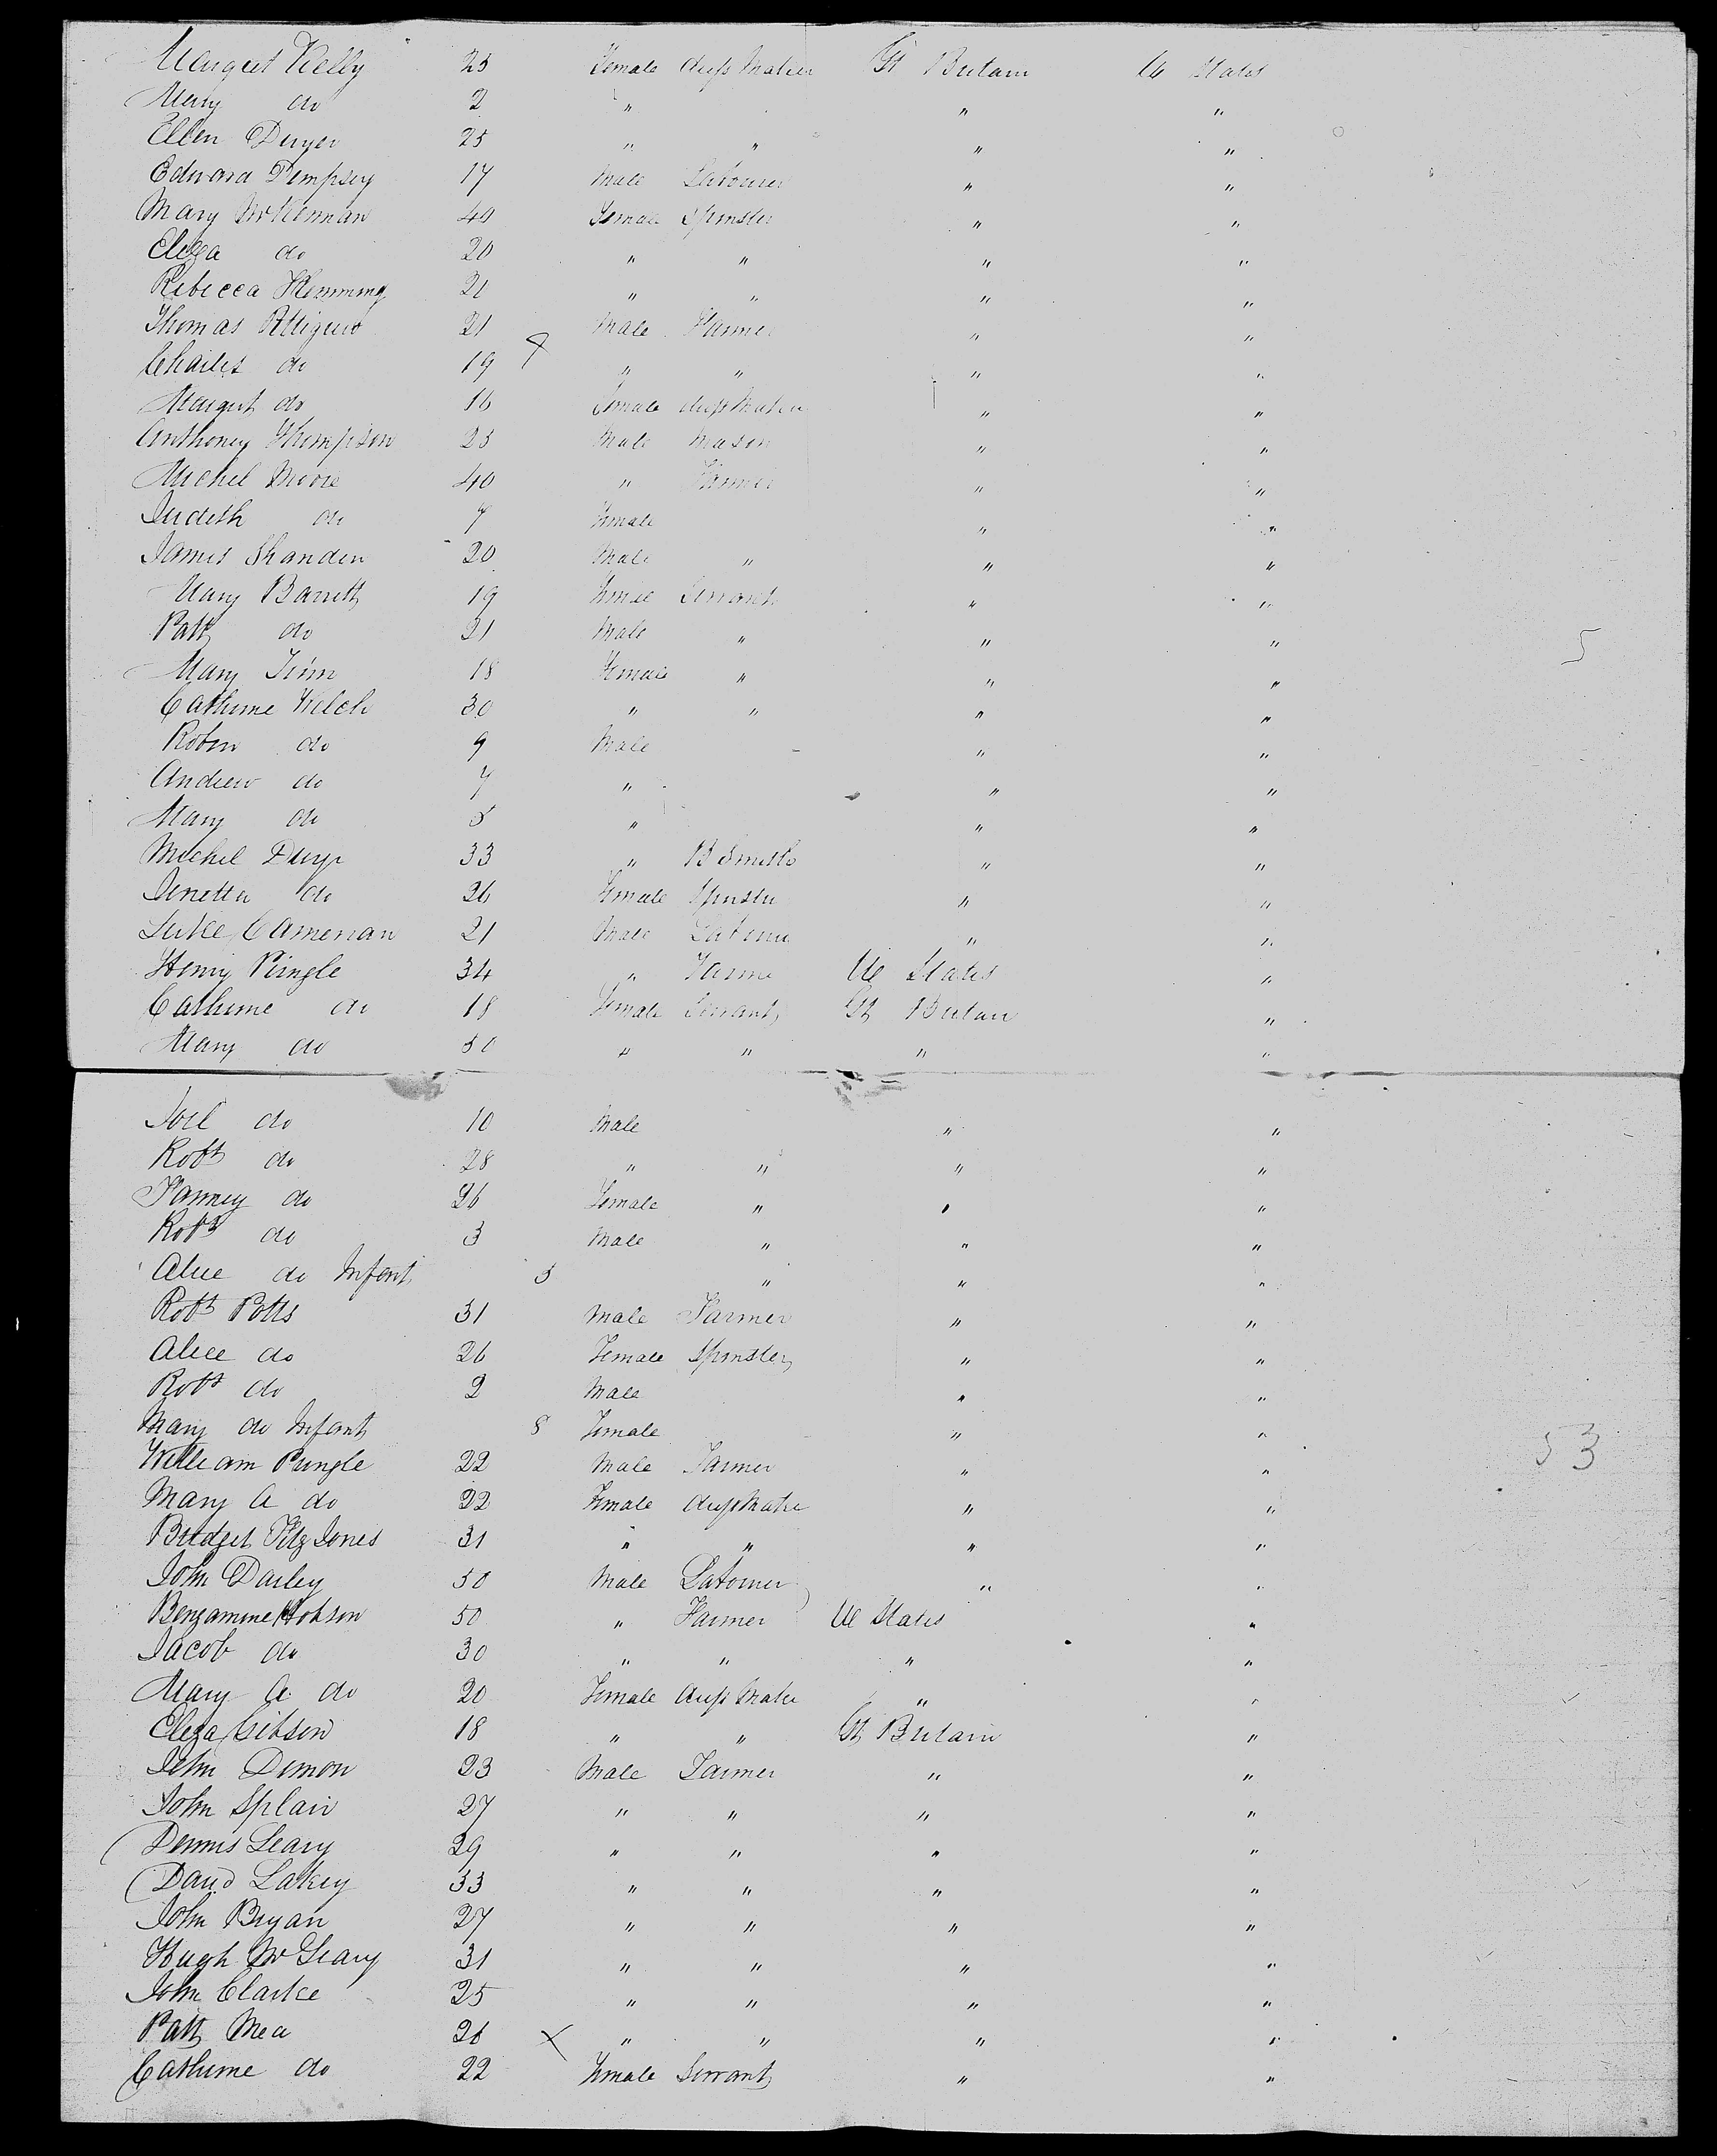 Margret Kelly 25 Female dress Maker Gt Britain U States
Mary do 2 " " "
Ellen Dwyer 25 " " " "
Edward Dempsey 17 Male Labourer " "
Mary McKennan 40 Female Spinster " "
Eliza do 20 " " " "
Rebecca Hemming 21 " " " "
Thomas 21 Male Farmer " "
Charles do 19 " " " "
Margret do 16 Female dress Maker " "
Anthoney Thompson 25 Male Mason " "
Michel Moore 40 " Farmer " "
Judith do 7 Female " "
James Shanden 20 Male " " "
Mary Barrett 19 Female Servant " "
Patk do 21 Male " " "
Mary Finn 18 Female " " "
5
Catherine Welch 30 " " " "
Robin do 9 Male " "
Andrew do 7 " " "
Mary do 5 " " "
Michel Dwyr 33 " B Smith " "
Jenetta do 26 Female Spinster " "
Luke 21 Male Labourer " "
Henry Pringle 34 " Farmer U States "
Catherine do 18 Female Servant Gt Britain "
Mary do 50 " " " "
Joel do 10 Male " "
Robt do 28 " " " "
Fanney do 26 Female " " "
Robt do 3 Male " " "
Alice do Infant 5 " " "
Robt Potts 31 Male Farmer " "
Alice do 26 Female Spinster " "
Robt do 2 Male " "
Mary do Infant 8 Female " "
53
William Pringle 22 Male Farmer " "
Mary A do 22 Female dress Maker " "
Bridget Fitz Jones 31 " " " "
John Darley 50 Male Labourer " "
Benjamine Hobson 50 " Farmer U States "
Jacob do 30 " " " "
Mary A do 20 Female dress Maker " "
Eliza Gibson 18 " " Gt Britain "
John Dimon 23 Male Farmer " "
John Splain 27 " " " "
Dennis Leary 29 " " " "
David Lakey 33 " " " "
John Bryan 27 " " " "
Hugh McGeary 31 " " " "
John Clarke 25 " " " "
Patk Mea 26 X " " " "
Catherine do 22 Female Servant " "